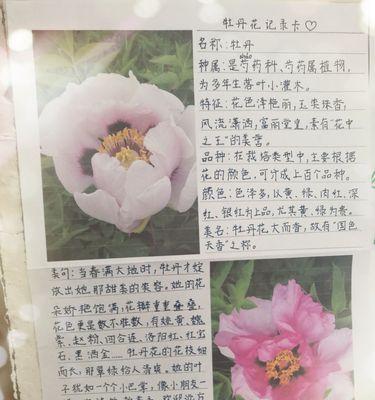 牡丹花记录卡♡
名称:牡丹
sháo
种属:是芍药科、芍药属植物,
为多年生落叶小灌木。
特征:花色泽艳丽,玉笑珠香,
风流潇洒,富丽堂皇,素有“花中
之王”的美誉。
品种:在栽培类型中,主要根据
花的颜色,可分成上百个品种。
颜色:色泽多,以黄、绿、肉红、深
红、银红为上品,尤其黄、绿为贵。
美名:牡丹花大而香,故有“国色
天香”之称。
美句:当春满大地时,牡丹才绽
放出她那甜美的笑容。她的花
朵娇艳饱满,花瓣重重叠叠,
花色更是数不胜数,有姚黄、魏
紫、赵粉、四合连、洛阳红、红宝
石、黑洒金……牡丹花的花枝细
而长,那翠绿给人清爽,她的叶
子犹如一个个小巴掌,像小朋友一